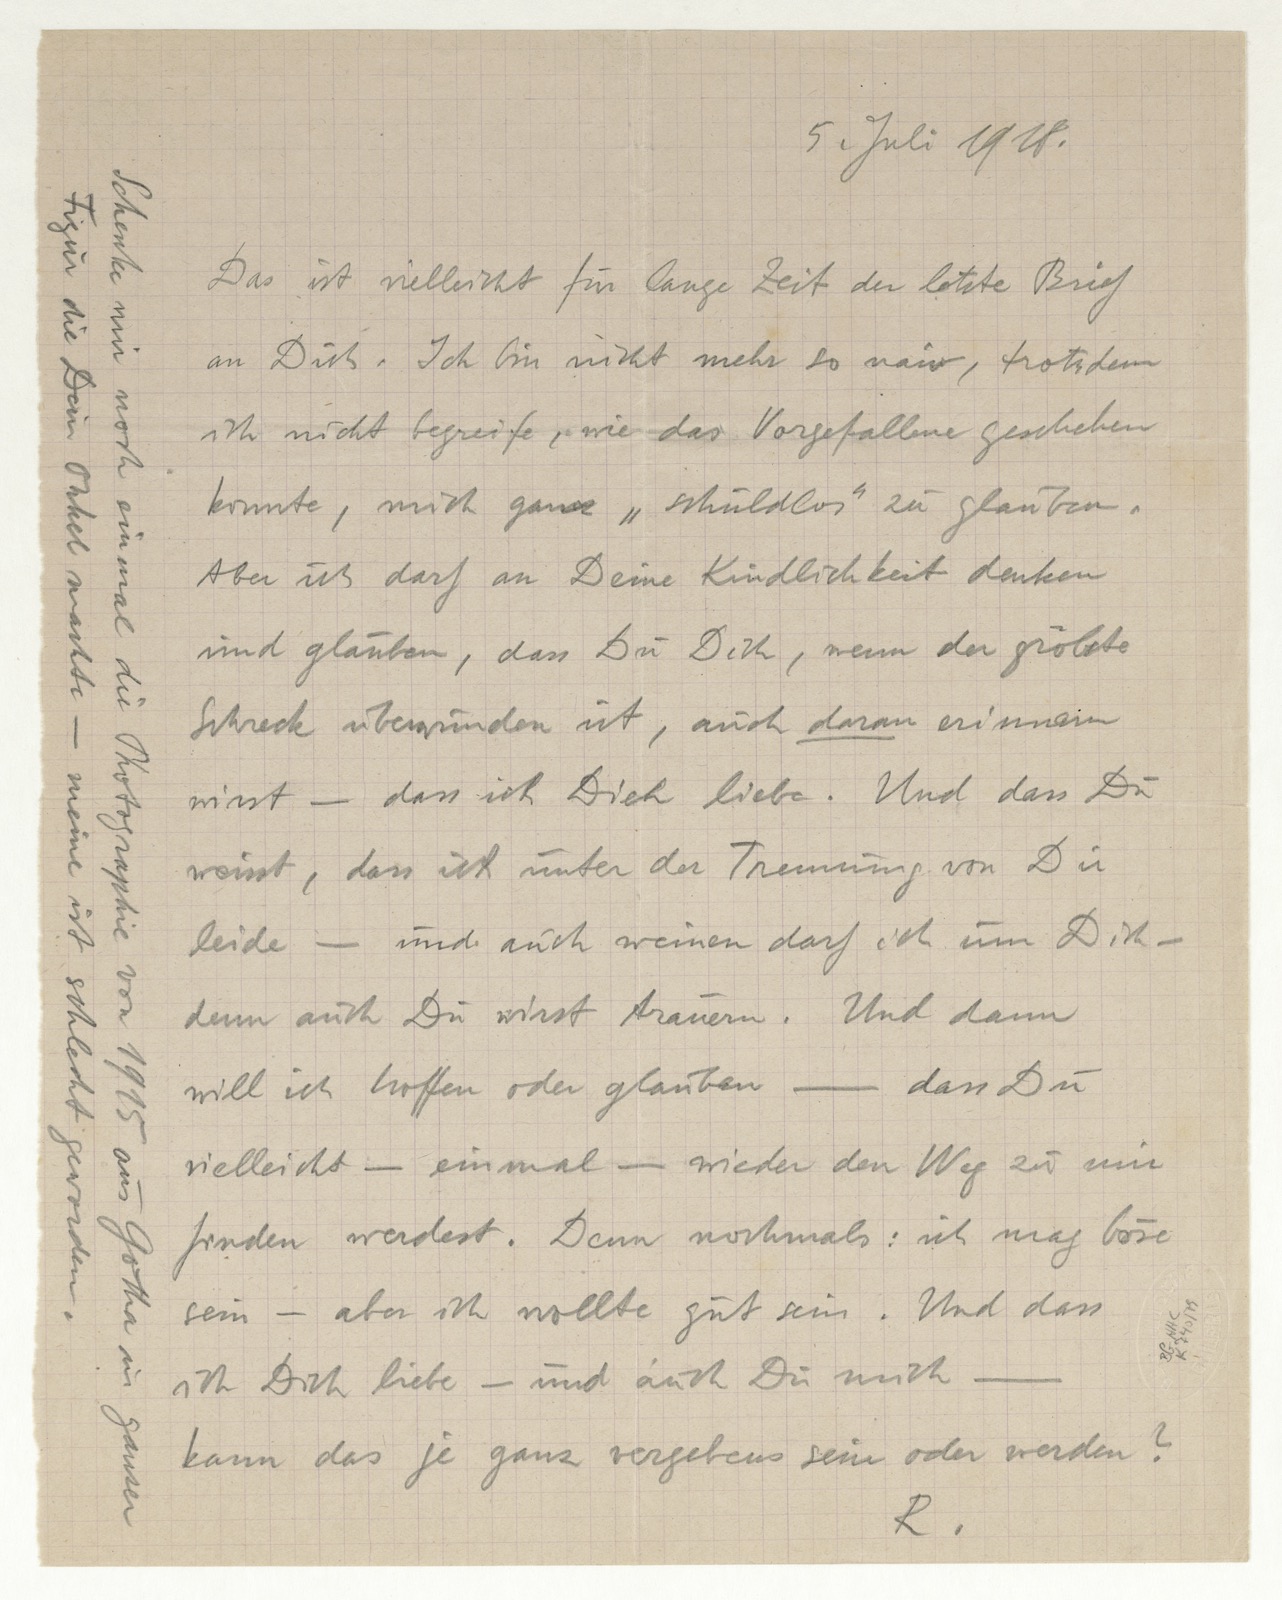 5. Juli 1918.
Das ist vielleicht für lange Zeit der letzte Brief
an Dich. Ich bin nicht mehr so naiv, trotzdem
ich nicht begreife, wie das Vorgefallene geschehen
konnte, mich ganz „schuldlos“ zu glauben.
Aber ich darf an Deine Kindlichkeit denken
und glauben, dass Du Dich, wenn der größte
Schreck überwunden ist, auch daran erinnern
wirst — dass ich Dich liebe. Und dass Du
weisst, dass ich unter der Trennung von Dir
leide — und auch weinen darf ich um Dich —
denn auch Du wirst trauern. Und dann
will ich hoffen oder glauben — dass Du
vielleicht — einmal — wieder den Weg zu mir
finden werdest. Denn nochmals: ich mag böse
sein — aber ich wollte gut sein. Und dass
ich Dich liebe — und auch Du mich —
kann das je ganz vergebens sein oder werden?
R.
Schenke mir noch einmal die Photographie von 1915 aus Gotha in ganzer
Figur die Dein Onkel machte — meine ist schlecht geworden.